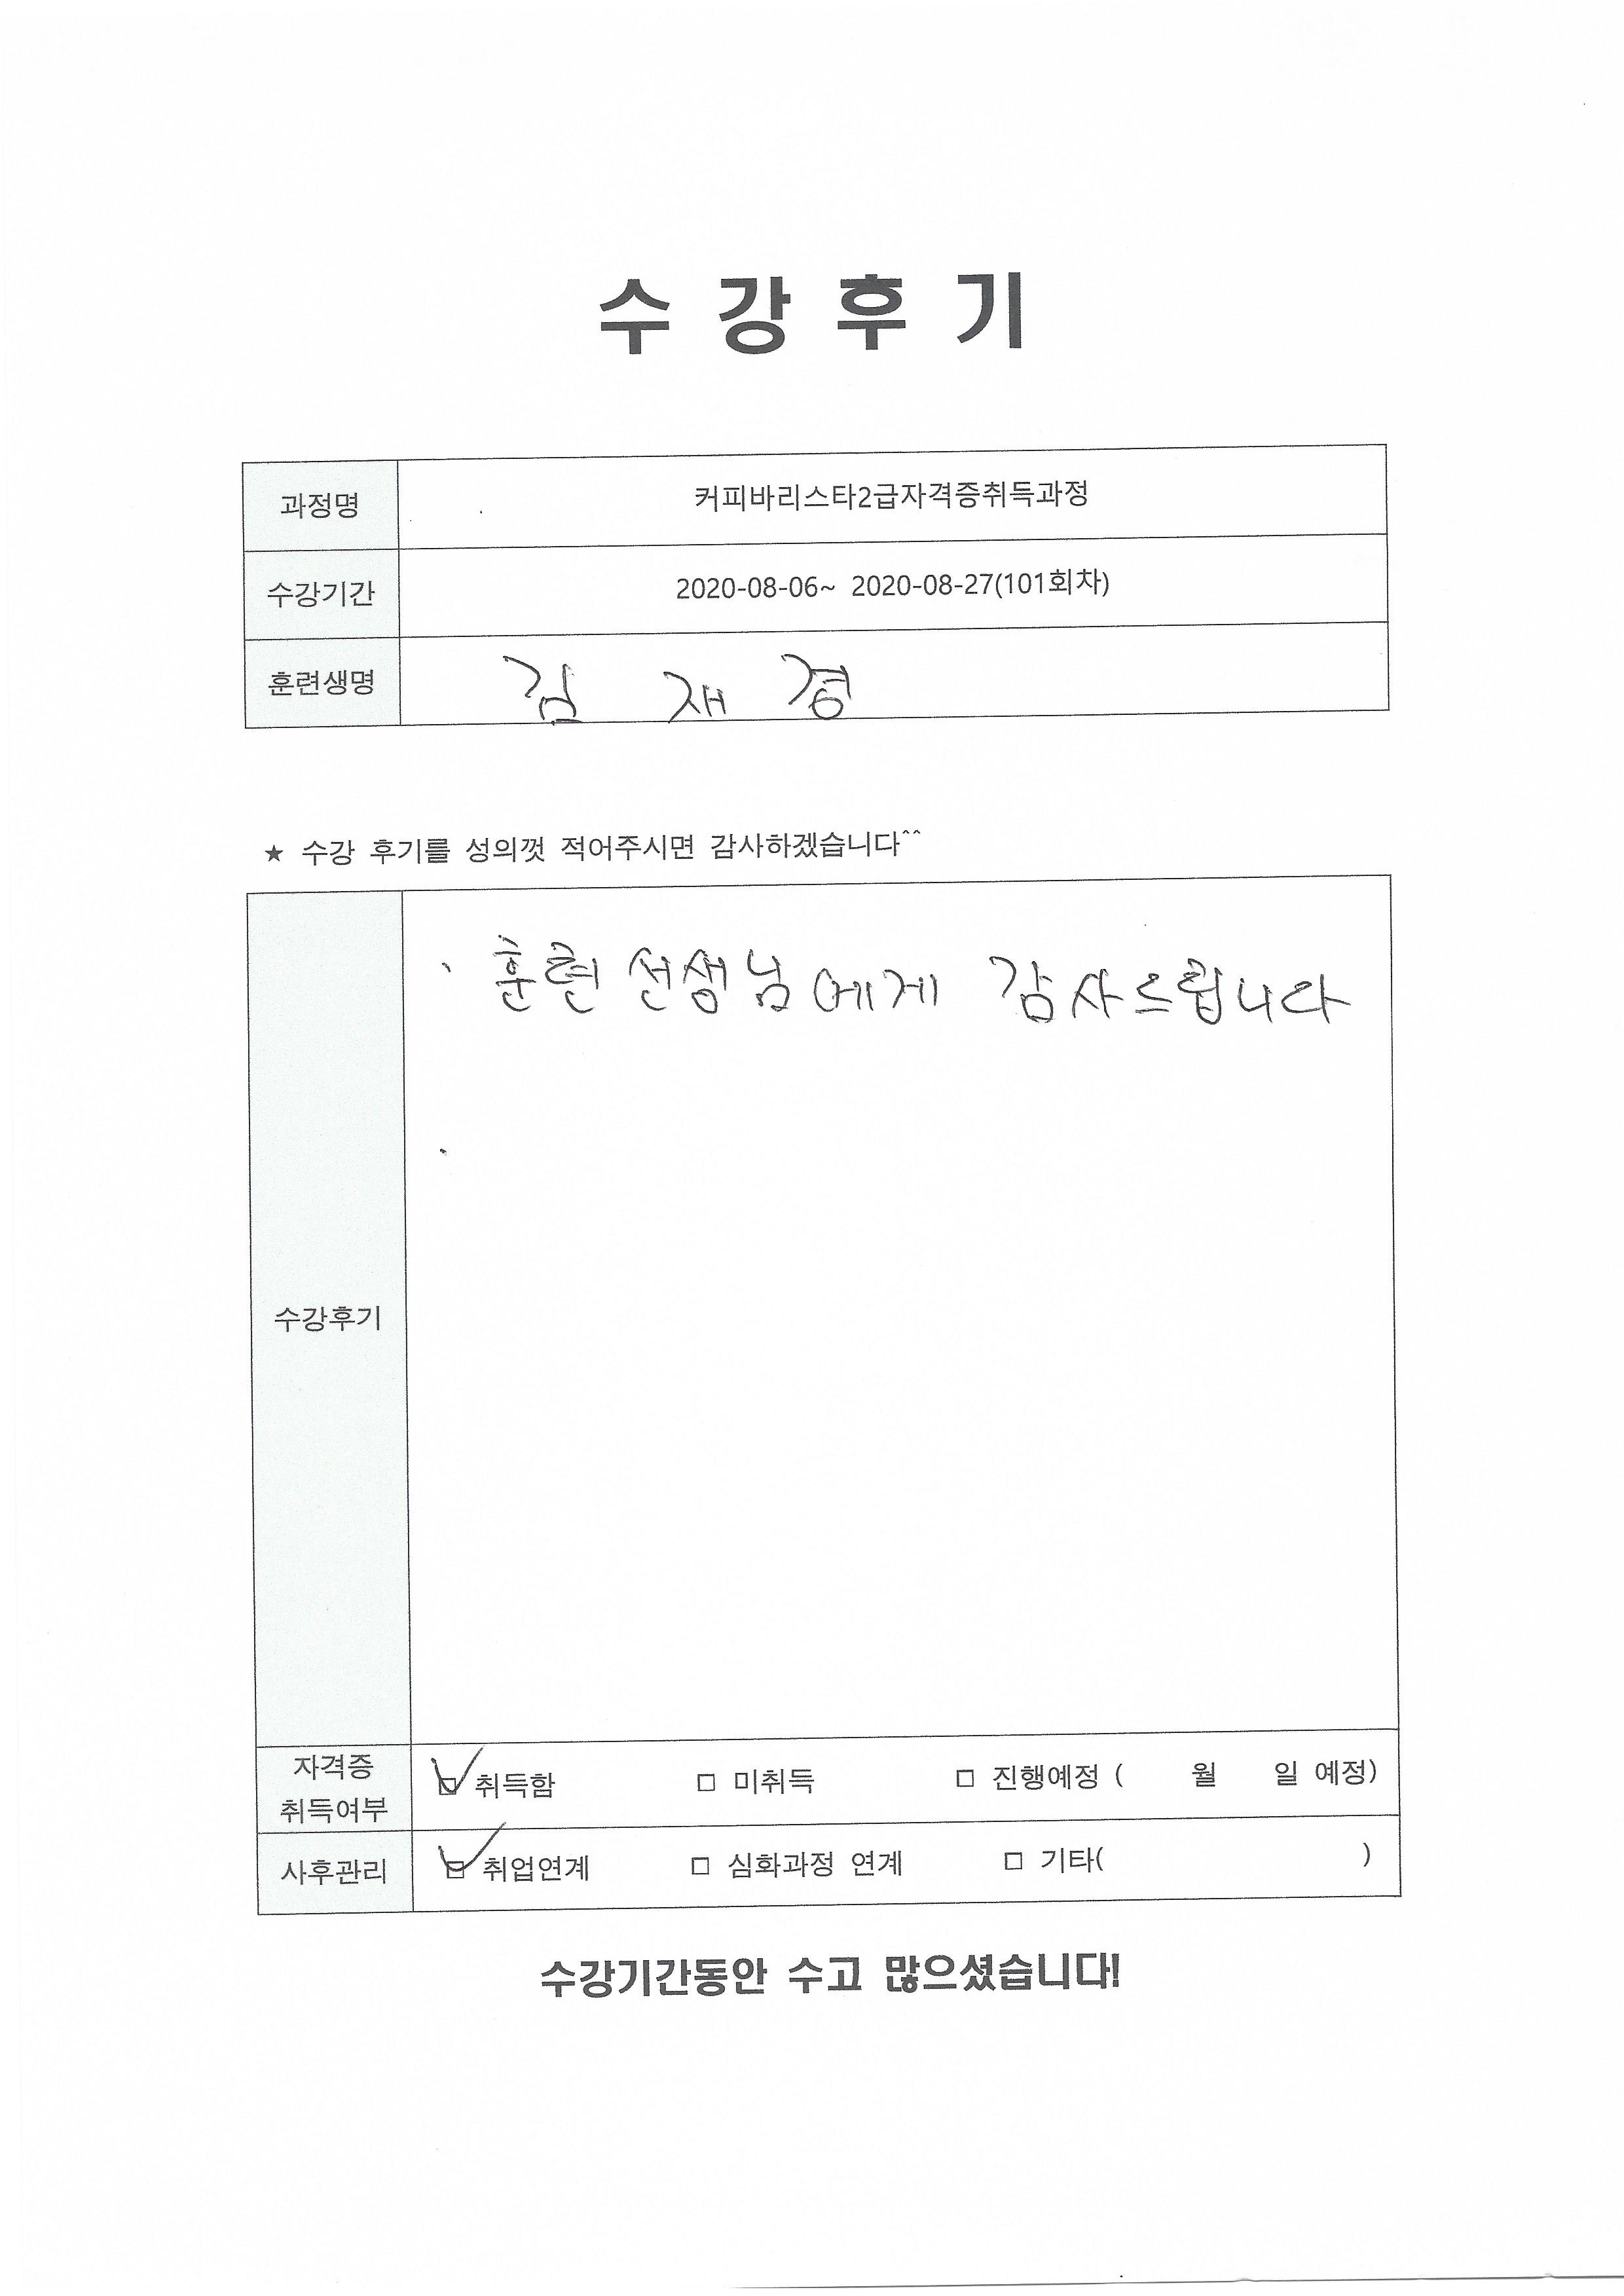 수 강 후 기
과정명 커피바리스타2급자격증취득과정
수강기간 2020-08-06~ 2020-08-27(101회차)
훈련생명 김 재 경
★ 수강 후기를 성의껏 적어주시면 감사하겠습니다^^
훈련 선생님에게 감사드립니다
수강후기
자격증
취득여부
☑ 취득함 □ 미취득 □ 진행예정 ( 월 일 예정)
사후관리 ☑ 취업연계 □ 심화과정 연계 □ 기타( )
수강기간동안 수고 많으셨습니다!